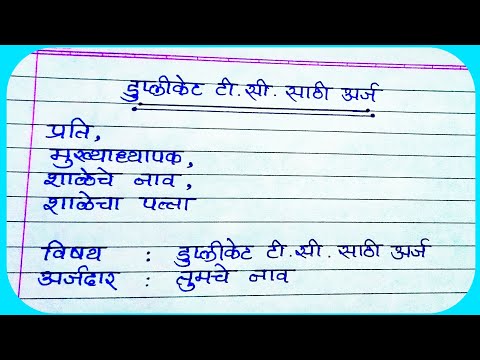 डुप्लीकेट टी.सी.साठी अर्ज
प्रति,
मुख्याध्यापक,
शाळेचे नाव,
शाळेचा पत्ता
विषय : डुप्लीकेट टी.सी.साठी अर्ज
अर्जदार : तुमचे नाव